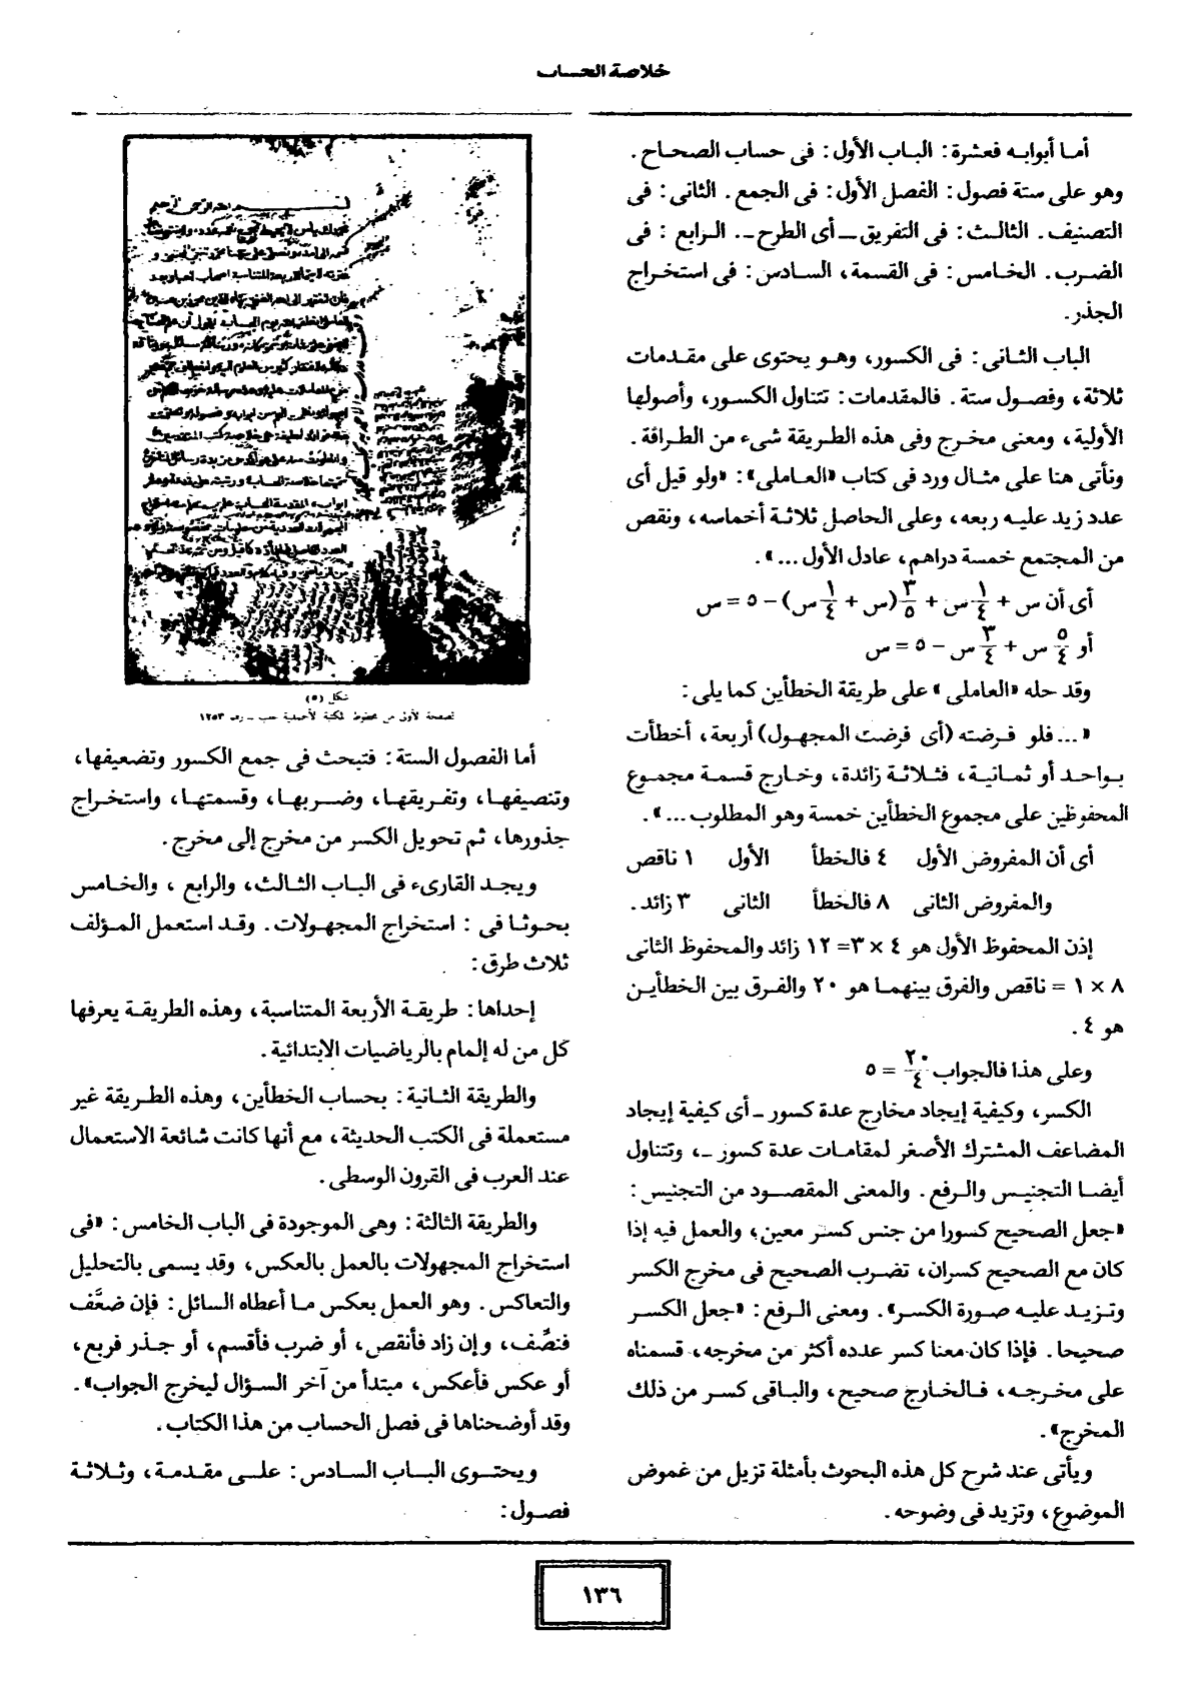 خلاصة الحساب
أما أبوابه فعشرة : الباب الأول : فى حساب الصحاح .
وهو على ستة فصول : الفصل الأول : فى الجمع . الثانى : فى
التصنيف . الثالث : فى التفريق ـ أى الطرح ـ . الرابع : فى
الضرب . الخامس : فى القسمة ، السادس : فى استخراج
الجذر .
الباب الثانى : فى الكسور ، وهو يحتوى على مقدمات
ثلاثة ، وفصول ستة . فالمقدمات : تتناول الكسور ، وأصولها
الأولية ، ومعنى مخرج وفى هذه الطريقة شىء من الطرافة .
ونأتى هنا على مثال ورد فى كتاب «العاملى» : «ولو قيل أى
عدد زيد عليه ربعه ، وعلى الحاصل ثلاثة أخماسه ، ونقص
من المجتمع خمسة دراهم ، عادل الأول ... » .
أى أن س + ١/٤ س + ٣/٥ (س + ١/٤ س) − ٥ = س
أو ٥/٤ س + ٣/٤ س − ٥ = س
وقد حله «العاملى » على طريقة الخطأين كما يلى :
« ... فلو فرضته (أى فرضت المجهول) أربعة ، أخطأت
بواحد أو ثمانية ، فثلاثة زائدة ، وخارج قسمة مجموع
المحفوظين على مجموع الخطأين خمسة وهو المطلوب ... » .
أى أن المفروض الأول ٤ فالخطأ الأول ١ ناقص
والمفروض الثانى ٨ فالخطأ الثانى ٣ زائد .
إذن المحفوظ الأول هو ٤ × ٣= ١٢ زائد والمحفوظ الثانى
٨ × ١ = ناقص والفرق بينهما هو ٢٠ والفرق بين الخطأين
هو ٤ .
وعلى هذا فالجواب ٢٠/٤ = ٥
الكسر ، وكيفية إيجاد مخارج عدة كسور ـ أى كيفية إيجاد
المضاعف المشترك الأصغر لمقامات عدة كسور ـ ، وتتناول
أيضا التجنيس والرفع . والمعنى المقصود من التجنيس :
«جعل الصحيح كسورا من جنس كسر معين ؛ والعمل فيه إذا
كان مع الصحيح كسران ، تضرب الصحيح فى مخرج الكسر
وتزيد عليه صورة الكسر» . ومعنى الرفع : «جعل الكسر
صحيحا . فإذا كان معنا كسر عدده أكثر من مخرجه ، قسمناه
على مخرجه ، فالخارج صحيح ، والباقى كسر من ذلك
المخرج» .
ويأتى عند شرح كل هذه البحوث بأمثلة تزيل من غموض
الموضوع ، وتزيد فى وضوحه .
شكل (٥)
حلب ـ رقم ١٢٥٣
أما الفصول الستة : فتبحث فى جمع الكسور وتضعيفها ،
وتنصيفها ، وتفريقها ، وضربها ، وقسمتها ، واستخراج
جذورها ، ثم تحويل الكسر من مخرج إلى مخرج .
ويجد القارىء فى الباب الثالث ، والرابع ، والخامس
بحوثا فى : استخراج المجهولات . وقد استعمل المؤلف
ثلاث طرق :
إحداها : طريقة الأربعة المتناسبة ، وهذه الطريقة يعرفها
كل من له إلمام بالرياضيات الابتدائية .
والطريقة الثانية : بحساب الخطأين ، وهذه الطريقة غير
مستعملة فى الكتب الحديثة ، مع أنها كانت شائعة الاستعمال
عند العرب فى القرون الوسطى .
والطريقة الثالثة : وهى الموجودة فى الباب الخامس : «فى
استخراج المجهولات بالعمل بالعكس ، وقد يسمى بالتحليل
والتعاكس . وهو العمل بعكس ما أعطاه السائل : فإن ضعَّف
فنصِّف ، وإن زاد فأنقص ، أو ضرب فأقسم ، أو جذر فربع ،
أو عكس فأعكس ، مبتدأ من آخر السؤال ليخرج الجواب» .
وقد أوضحناها فى فصل الحساب من هذا الكتاب .
ويحتوى الباب السادس : على مقدمة ، وثلاثة
فصول :
١٣٦